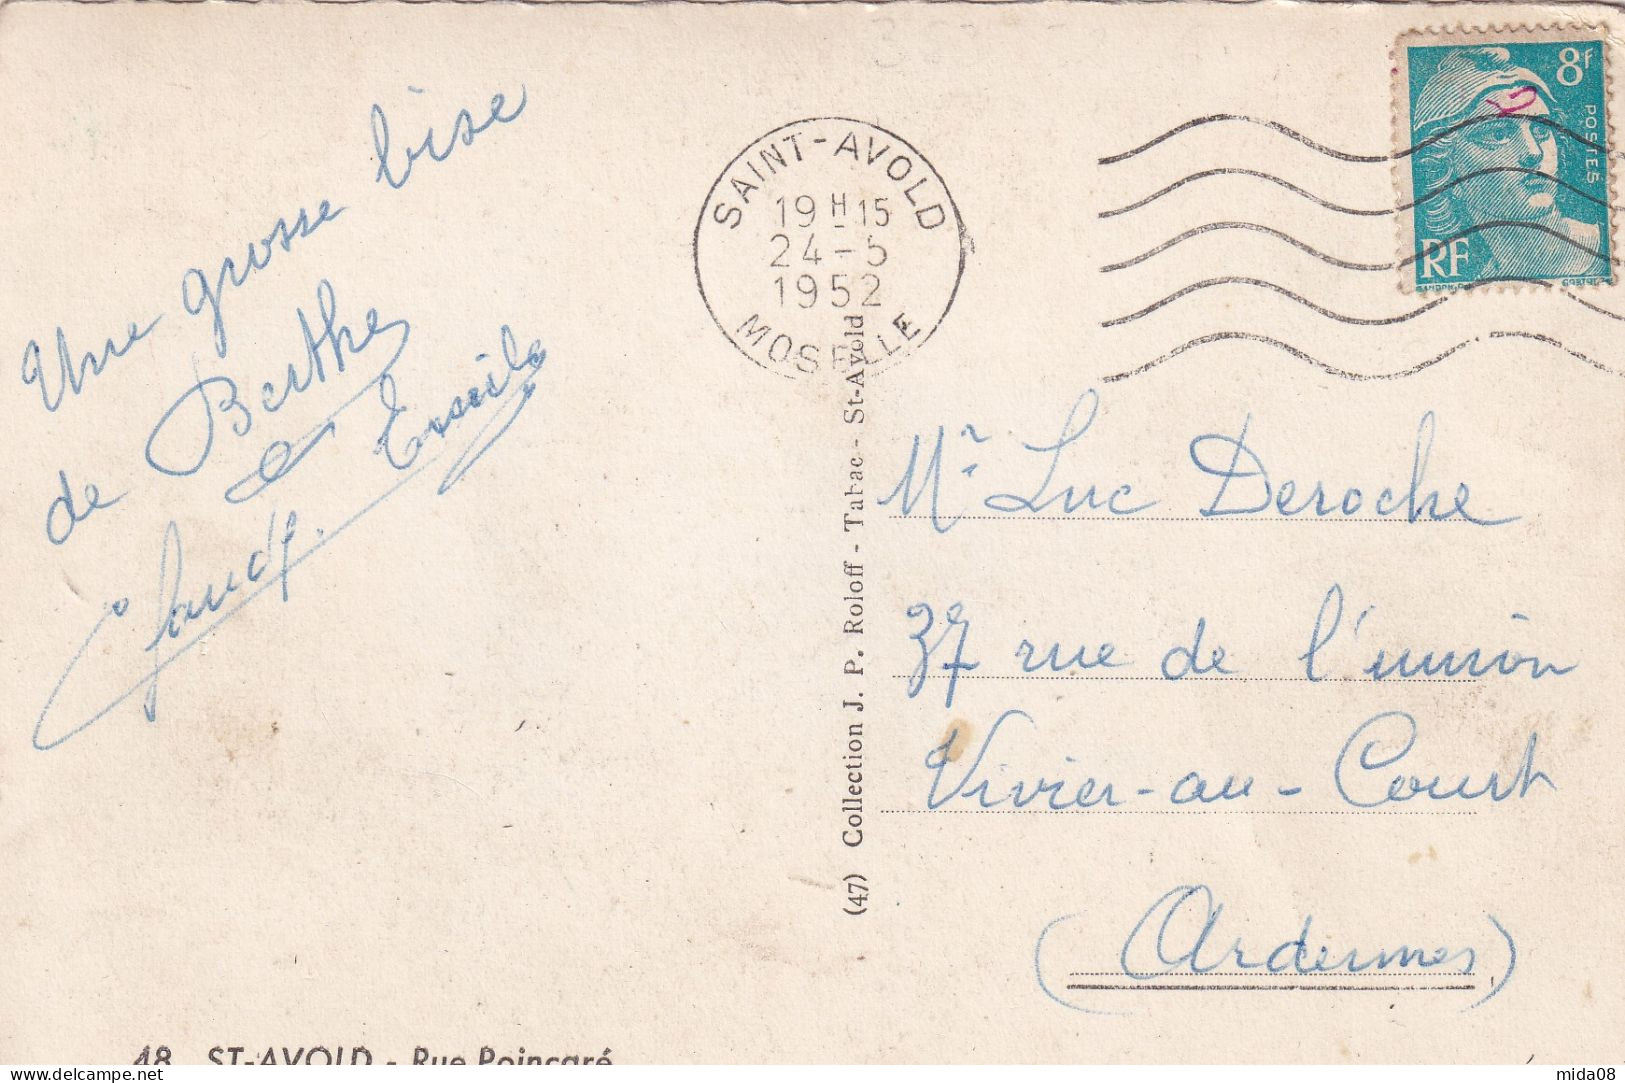 Une grosse bise
de Berthe
et Emile
Claude.
SAINT-AVOLD
19H15
24-5
1952
MOSELLE
8f
POSTES
RF
GANDON
Mr Luc Deroche
37 rue de l'union
Vivier-au-Court
(Ardennes)
(47) Collection J. P. Roloff - Tabac - St-Avold
48 ST-AVOLD - Rue Poincaré
mida08